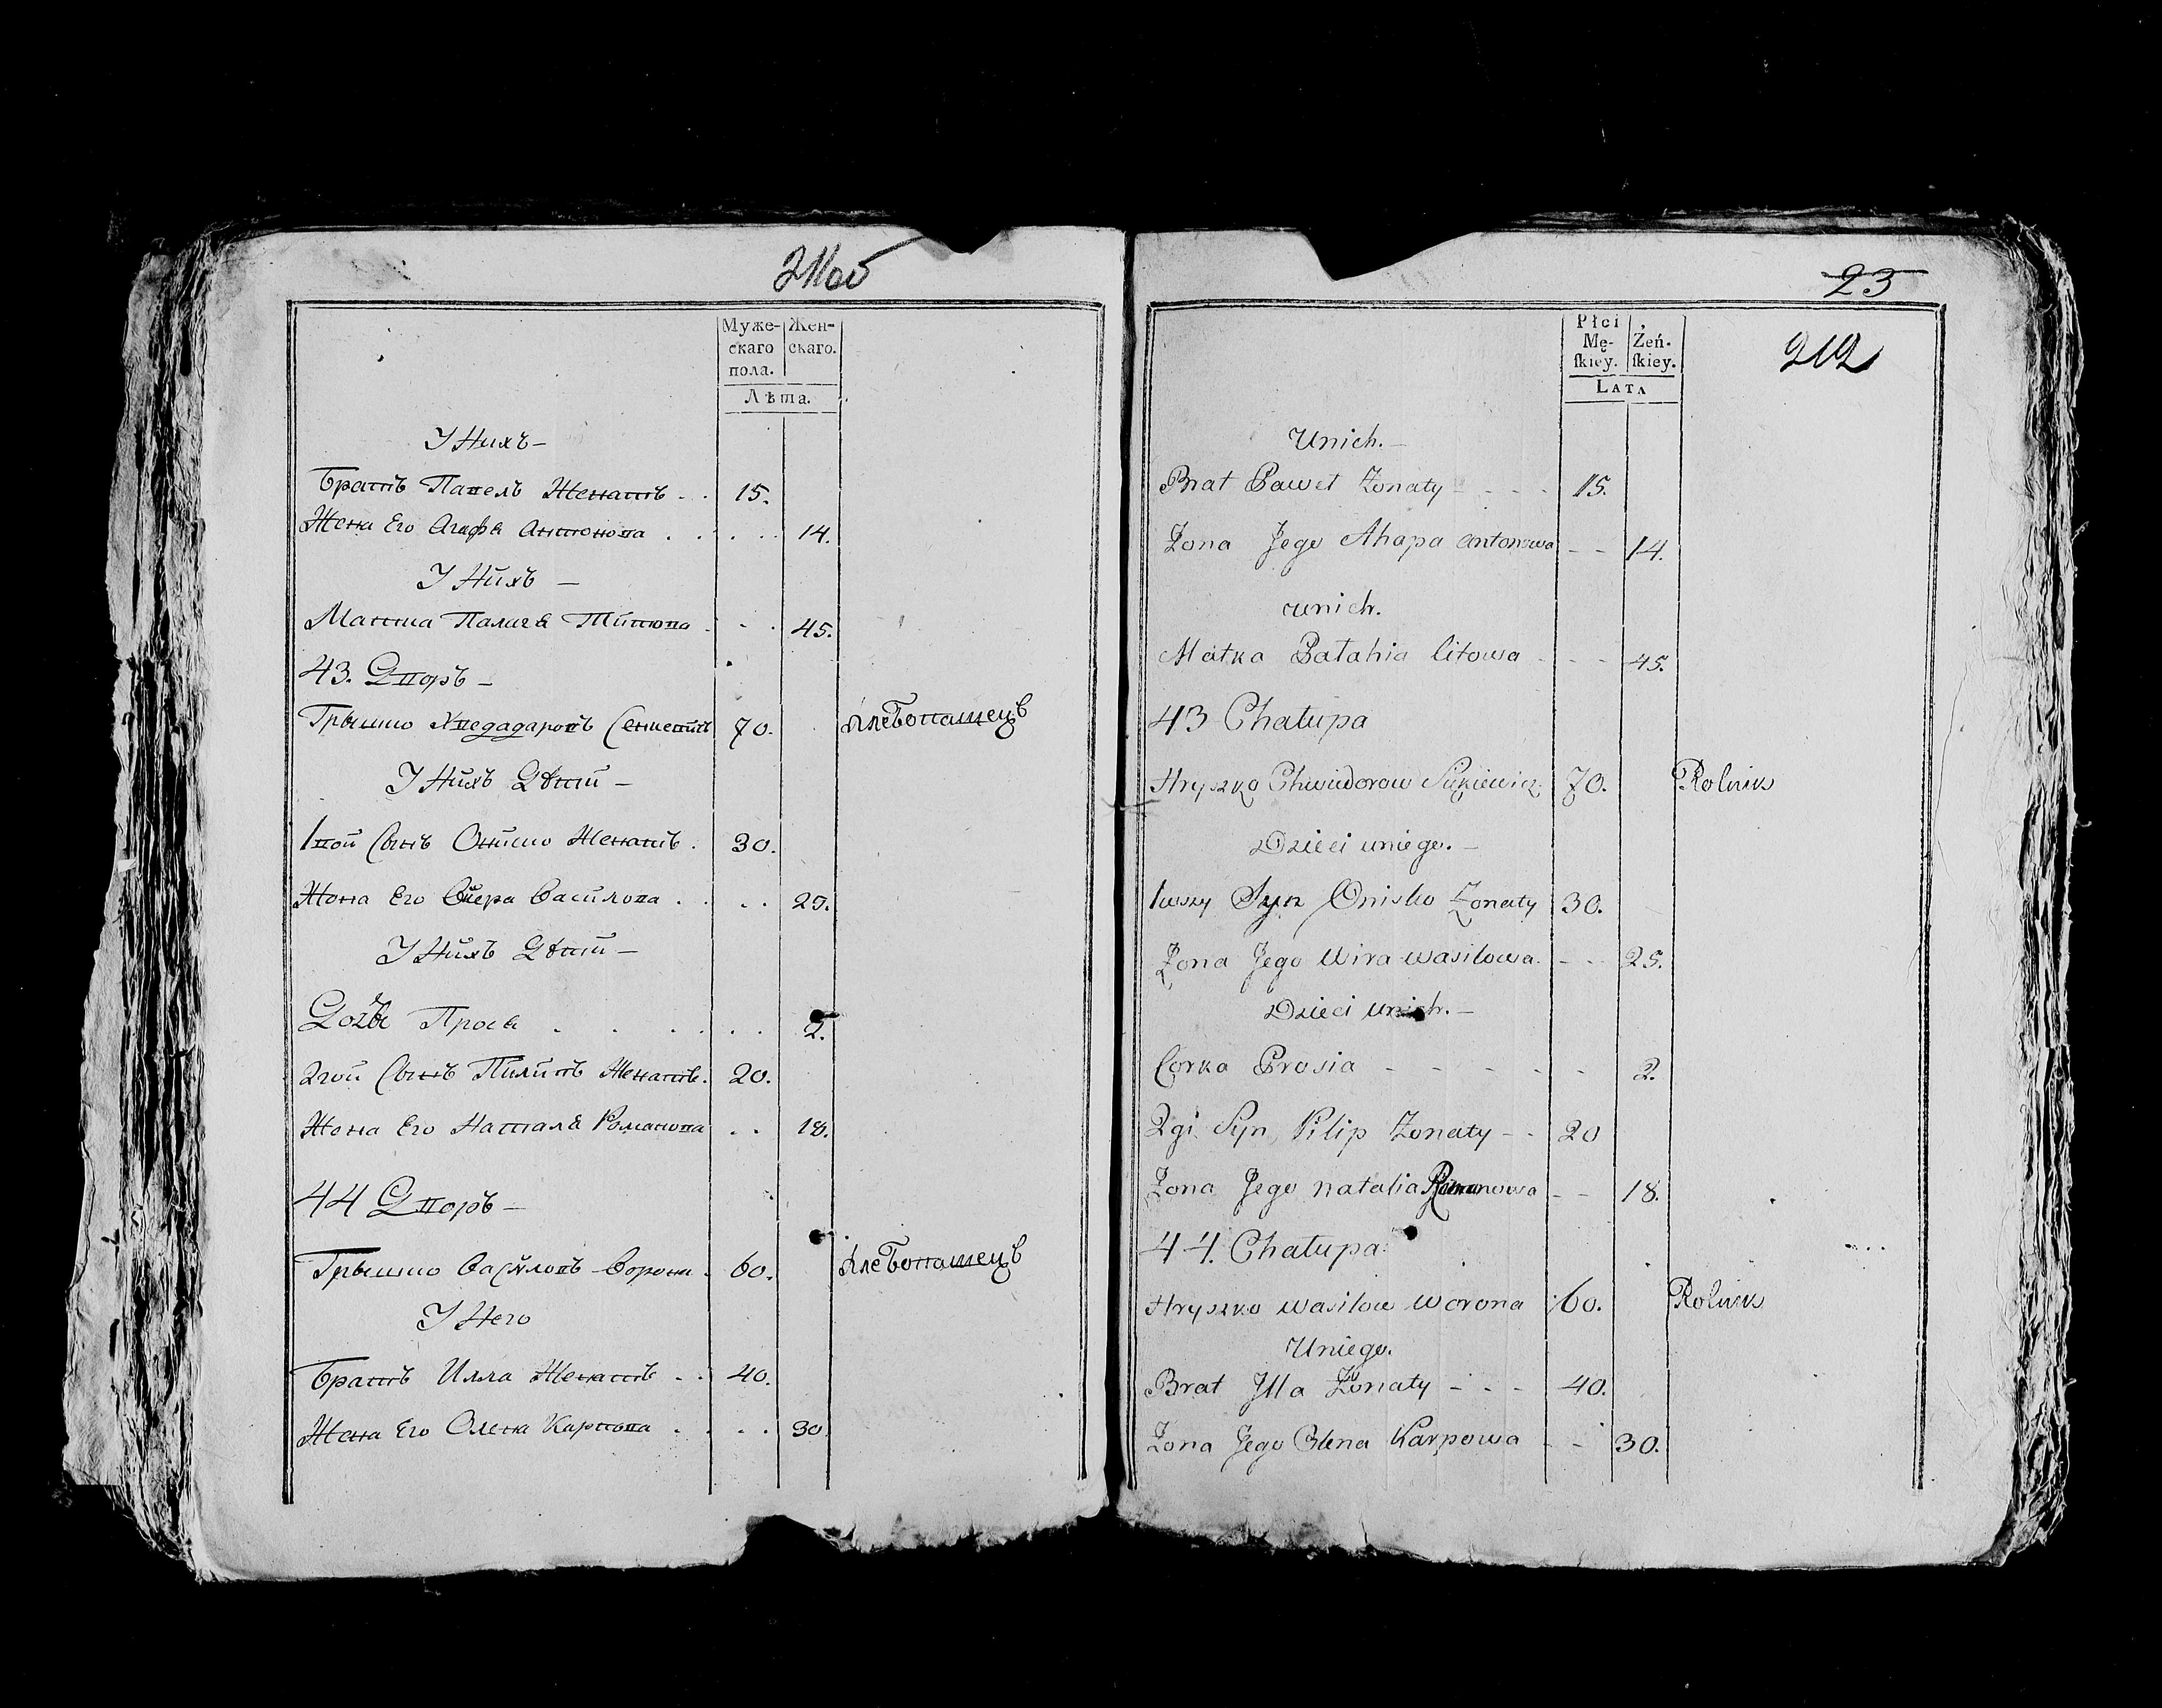 211об
Муже-
скаго
пола.
Жен-
скаго.
Лѣта.
У Нихъ —
Братъ Павелъ Женатъ . . 15.
Жена Его Агафія Антонова . . . . 14.
У Нихъ —
Матка Палагія Титова . . . 45.
43. Дворъ —
Грышко Хведаровъ 70. Хлебопашецъ
У Нихъ Дѣти —
1вой Сынъ Ониско Женатъ . 30.
Жена Его Вѣра Василова . . . 25.
У Нихъ Дѣти —
Дочь Прося . . . . . . 2.
2гой Сынъ Пилипъ Женатъ . 20.
Жена Его Наталія Романова . . 18.
44 Дворъ —
Грышко Василовъ Ворона . 60. Хлебопашецъ
У Него
Братъ Илла Женатъ . . 40.
Жена Его Олена Карпова . . . . 30
23
212
Płci
Mę-
ſkiey.
Żeń-
ſkiey.
Lata
Unich. —
Brat Paweł Zonaty - - - - 15.
Zona Jego Ahapa antonowa - - 14.
unich.
Matka Pałahia Titowa - - - 45.
43 Chałupa
Hryszko Chwiedorow 70. Rolnik
Dzieci uniego. —
1wszy Syn Onisko Zonaty 30.
Zona Jego Wira wasilowa - - - 25.
Dzieci unich. —
Corka Prosia - - - - - - 2.
2gi Syn Pilip Zonaty - - 20
Zona Jego natalia Romanowa - - 18.
44. Chałupa
Hryszko wasilow worona 60. Rolnik
Uniego.
Brat Jlla Zonaty - - - 40.
Zona Jego Olena Karpowa - - 30.